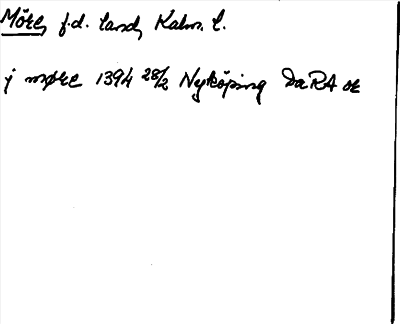 Möre, f.d. land, Kalm. l.
j møre 1394 28/2 Nyköping DaRA or